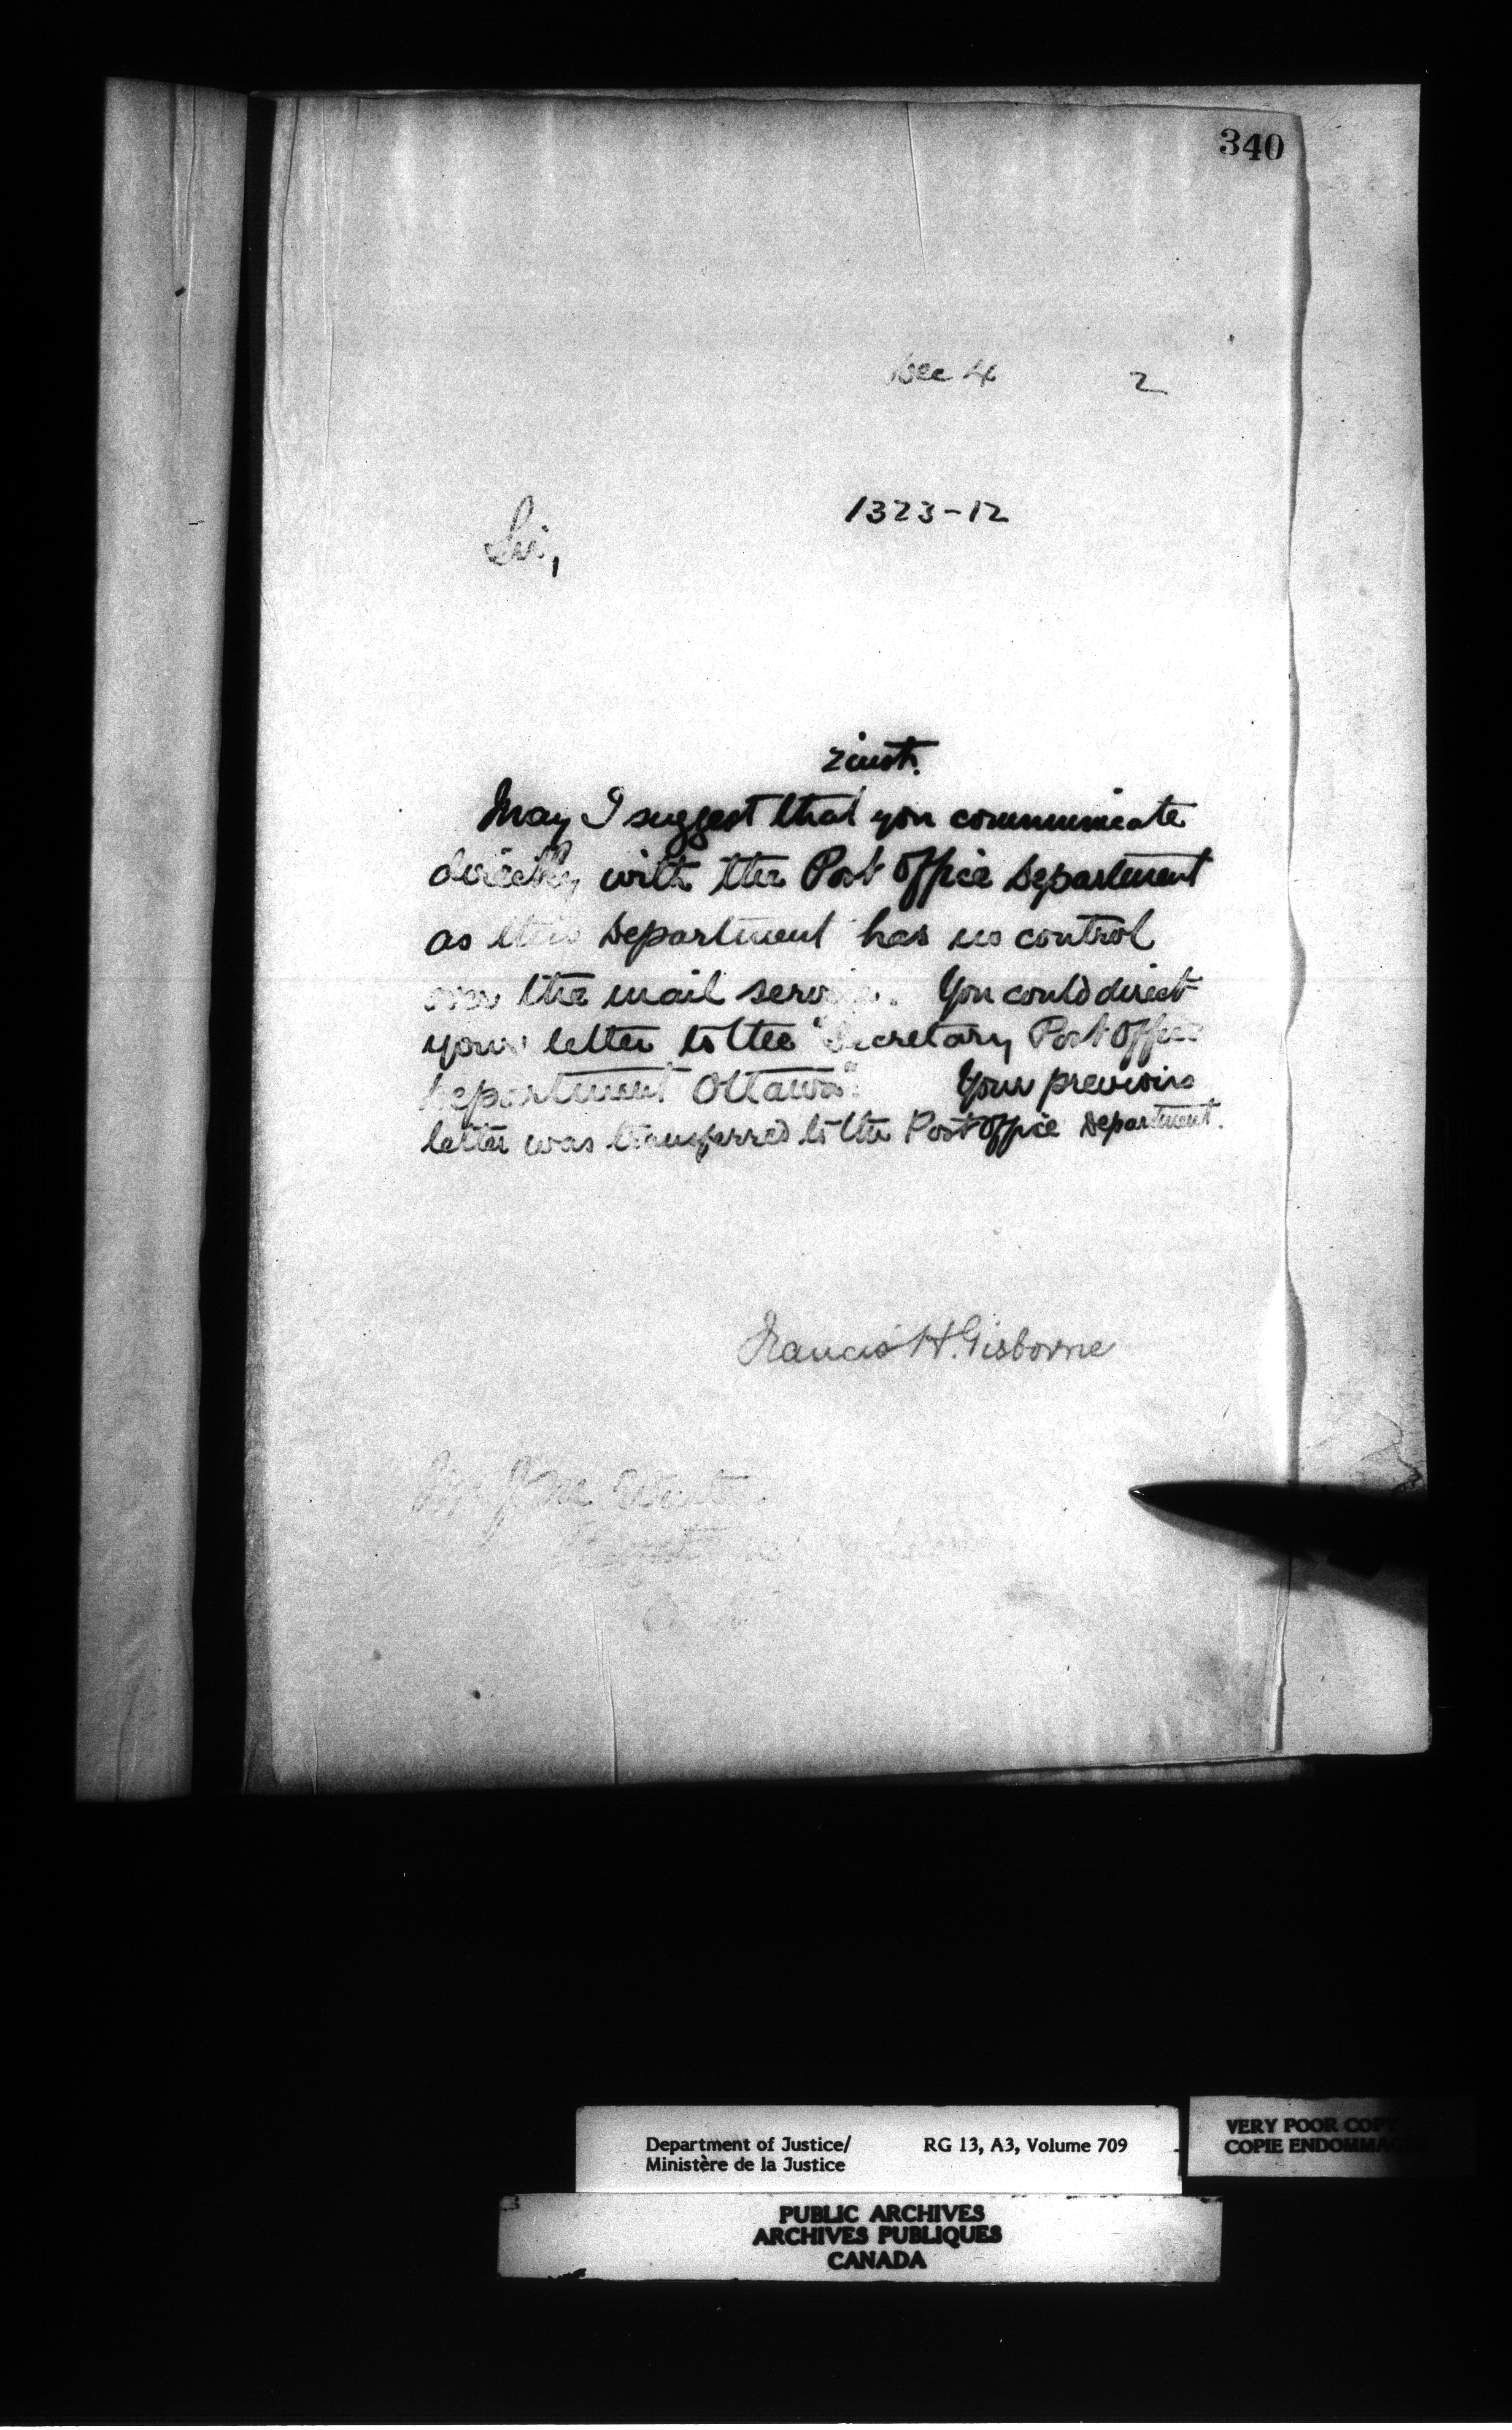 340
Dec 4 2
1323-12
Sir,
2 inst.
May I suggest that you communicate
directly with the Post Office Department
as this Department has no control
over the mail service. You could direct
your letter to the "Secretary Post Office
Department Ottawa". Your previous
letter was transferred to the Post Office Department.
Francis H. Gisborne
Department of Justice/ RG 13, A3, Volume 709
Ministère de la Justice
VERY POOR COPY
COPIE ENDOMMAG
PUBLIC ARCHIVES
ARCHIVES PUBLIQUES
CANADA